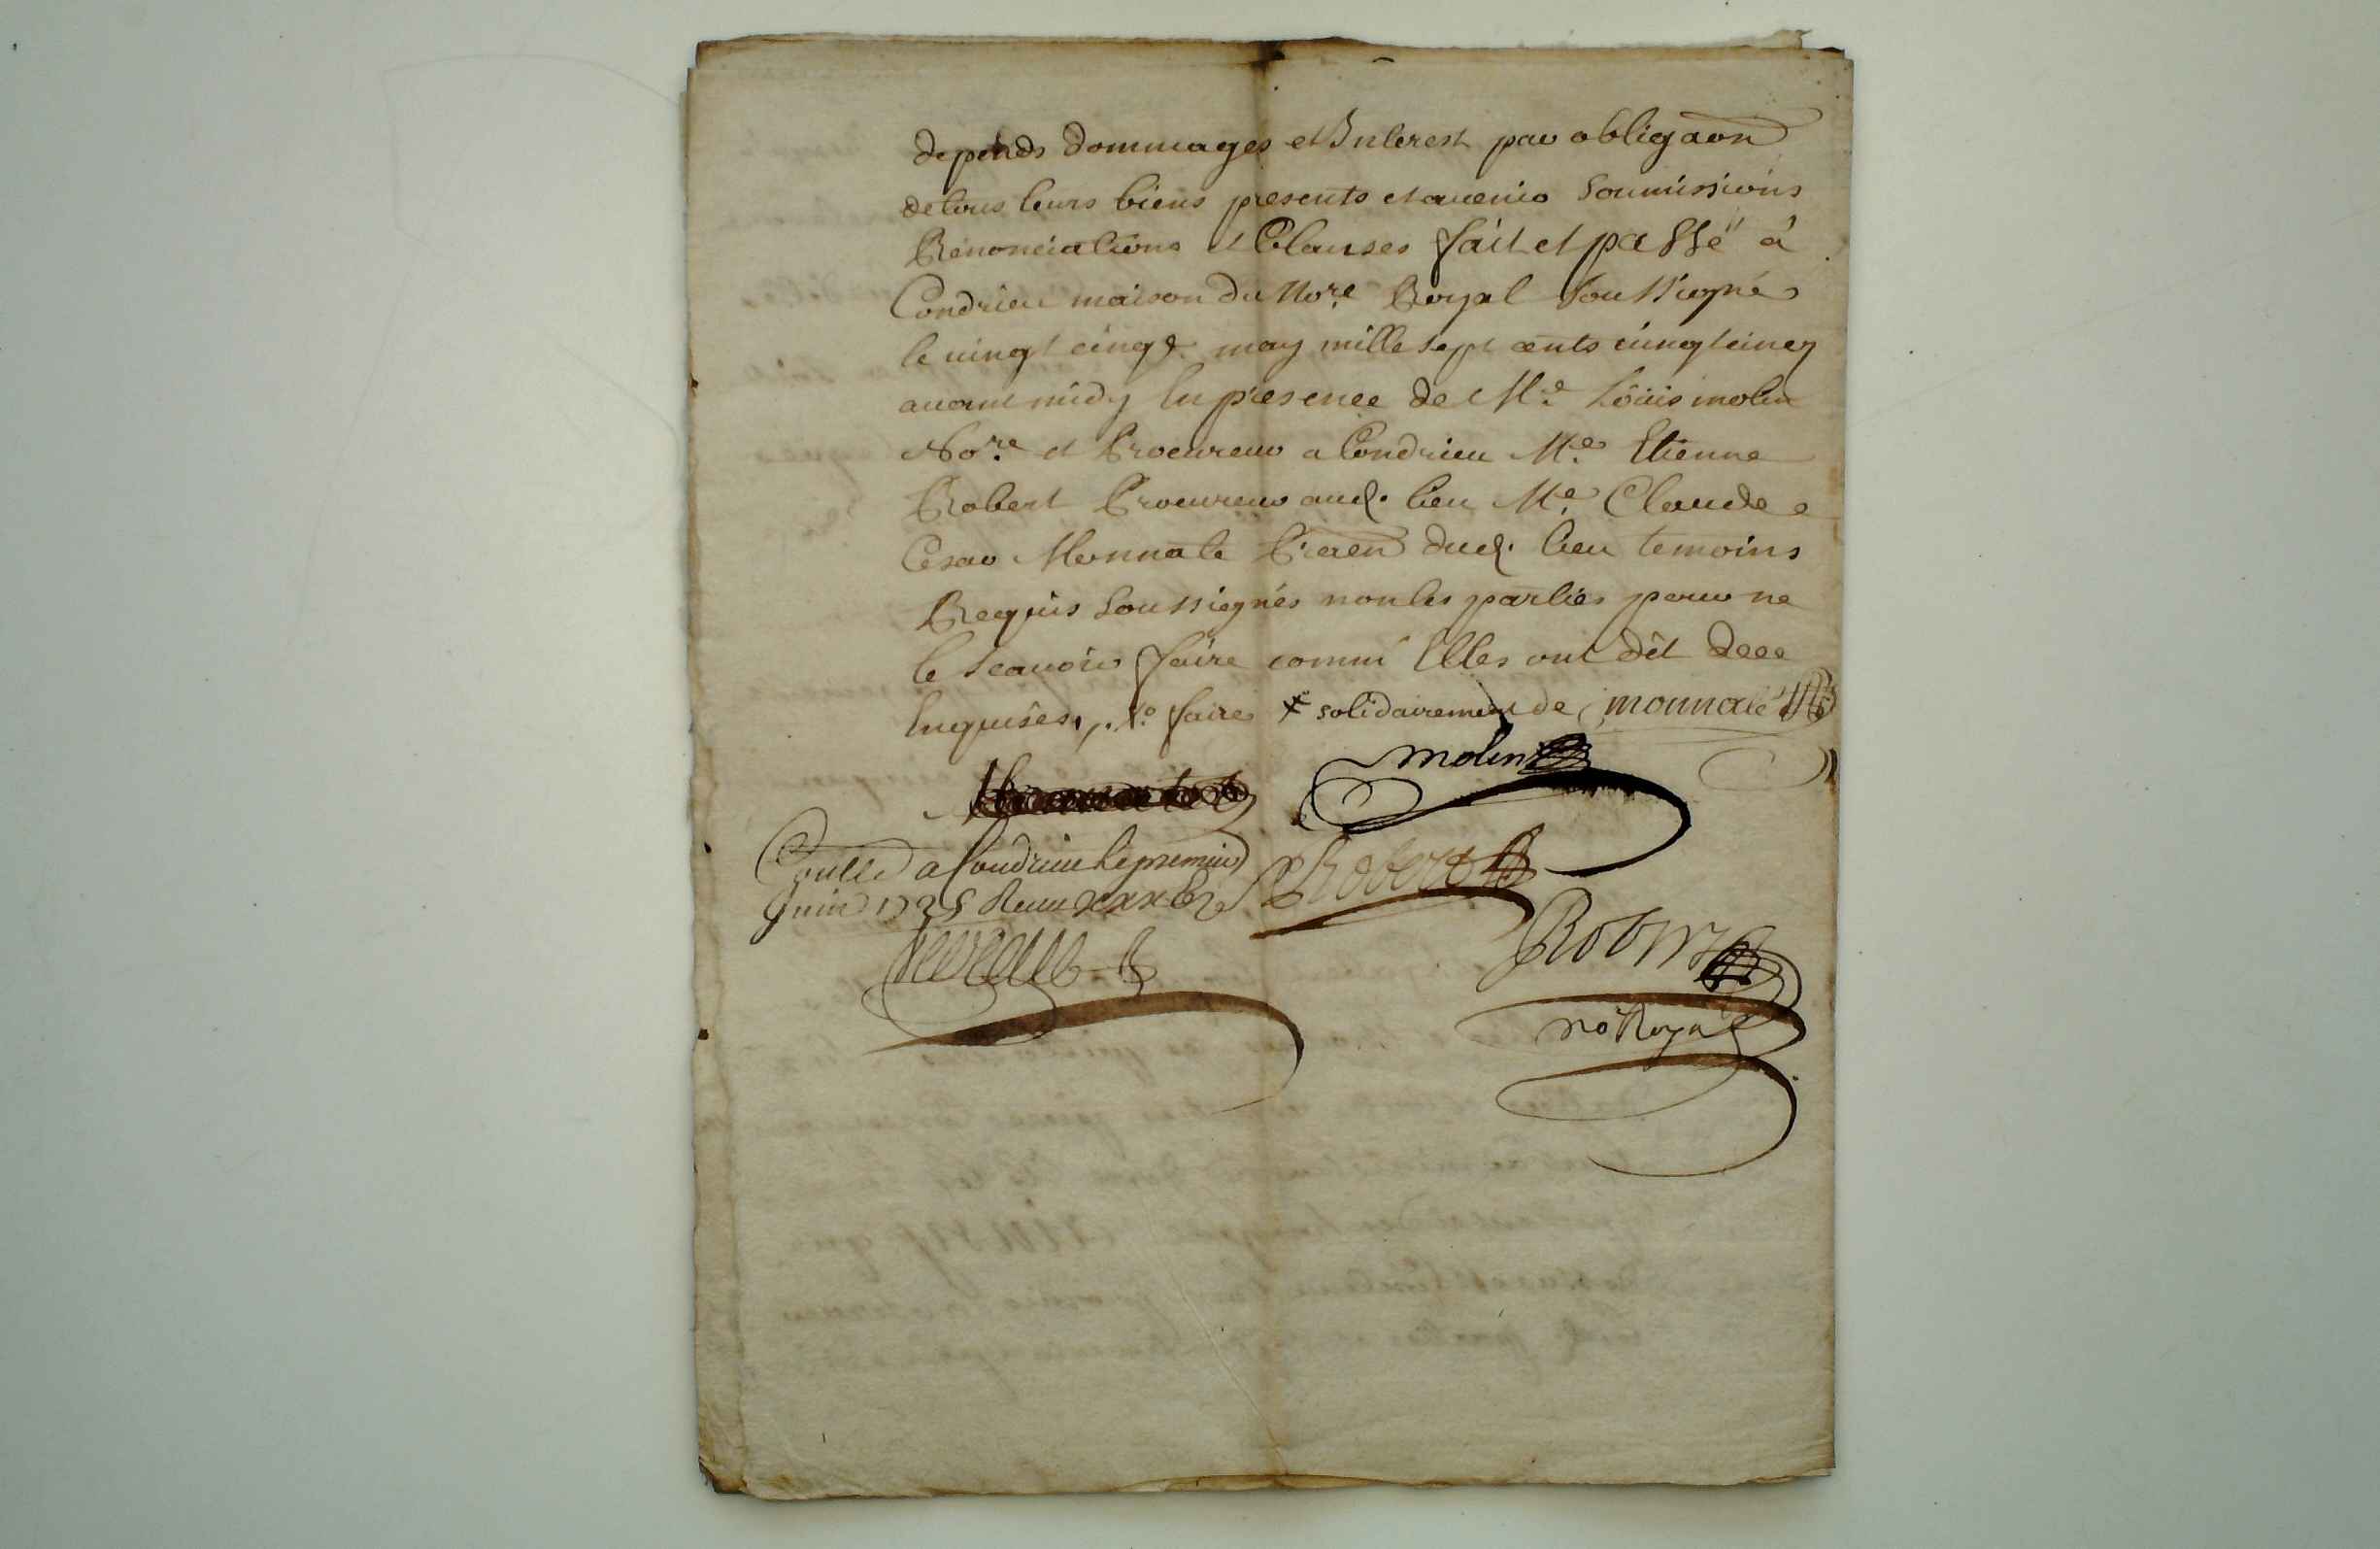 depends dommages et Interest par obligaon
de tous leurs biens presents et avenir Soumissions
Renonciations et Clauses fait et passé à
Condrieu maison du No.re Royal Soussigné
le vingt cinq.e may mille sept cents vingt cinq
avant midy En presence de M.e Loüis molin
No.re et Procureur a Condrieu M.e Etienne
Robert Procureur aud. lieu M.e Claude
Cesar Monnate Praen dud. lieu temoins
Requis Soussignés non les parties pour ne
le Scavoir faire comm' Elles ont dit de ce
Enquises, faire solidairement de monnate
molin
Coullé a Condrieu le premier
Juin 1725 Receu
Robert
Robert
no Royal